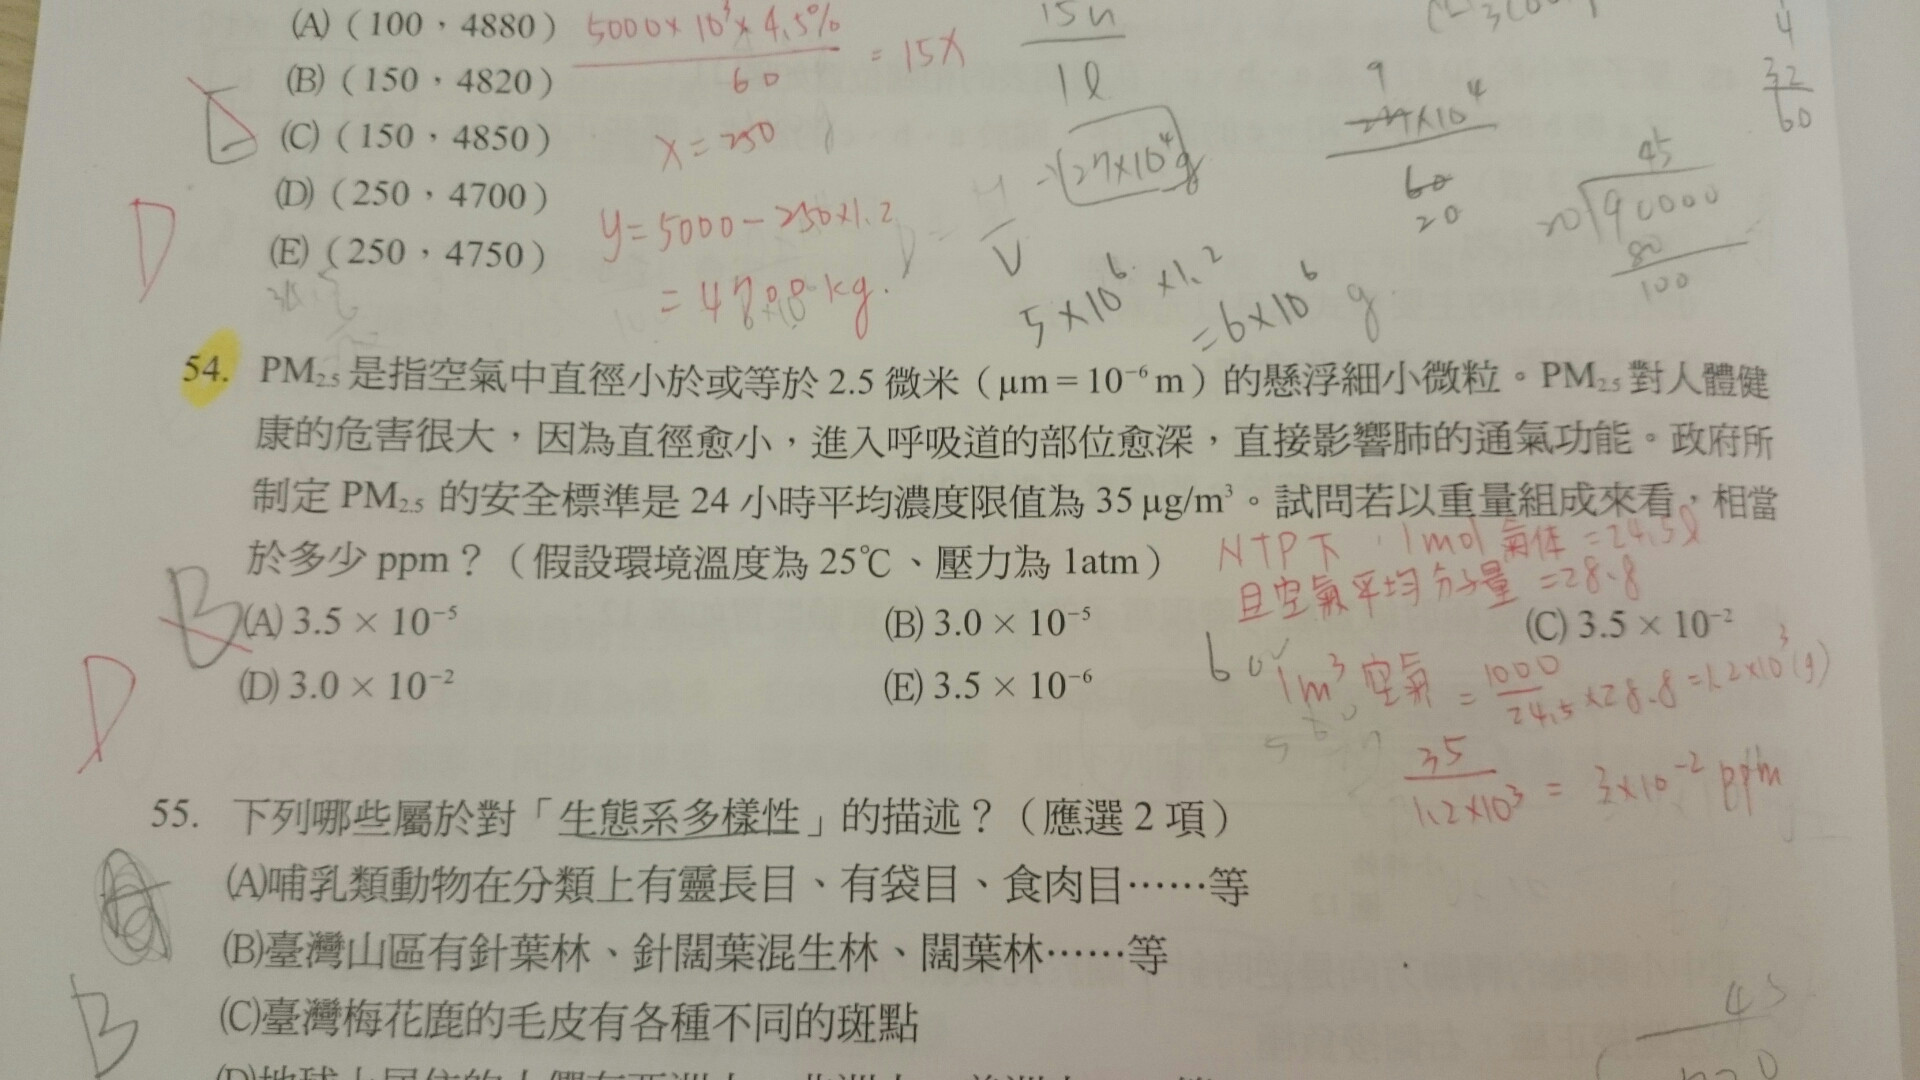 (A)(100,4880) 5000×10³×4.5% / 60 = 15X
(B)(150,4820)
(C)(150,4850) X=250
(D)(250,4700)
(E)(250,4750) y=5000-250×1.2
D
15n
1l
27×10⁴g
5×10⁶×1.2
=6×10⁶g
60
20
45
20 90000
80
100
4
32
60
54. PM2.5是指空氣中直徑小於或等於 2.5 微米(μm=10⁻⁶m)的懸浮細小微粒。PM2.5對人體健
康的危害很大,因為直徑愈小,進入呼吸道的部位愈深,直接影響肺的通氣功能。政府所
制定 PM2.5 的安全標準是 24 小時平均濃度限值為 35 μg/m³。試問若以重量組成來看,相當
於多少 ppm?(假設環境溫度為 25℃、壓力為 1atm)
NTP下,1mol氣体=24.5l
且空氣平均分子量=28.8
B
(A) 3.5 × 10⁻⁵ (B) 3.0 × 10⁻⁵ (C) 3.5 × 10⁻²
(D) 3.0 × 10⁻² (E) 3.5 × 10⁻⁶
D
1m³空氣=1000/24.5×28.8=1.2×10³(g)
35/1.2×10³ = 3×10⁻² ppm
55. 下列哪些屬於對「生態系多樣性」的描述?(應選 2 項)
(A)哺乳類動物在分類上有靈長目、有袋目、食肉目……等
(B)臺灣山區有針葉林、針闊葉混生林、闊葉林……等
(C)臺灣梅花鹿的毛皮有各種不同的斑點
B
45